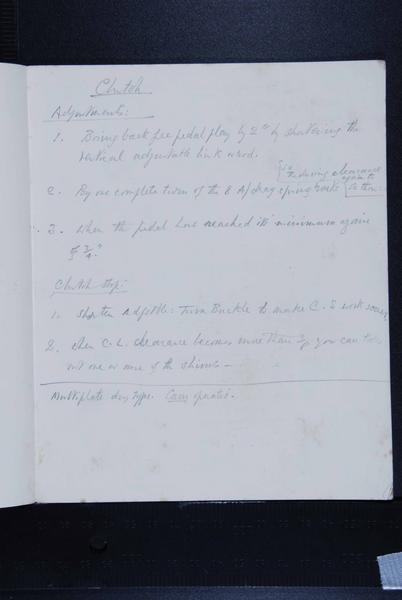 Clutch
Adjustments:
1. Bring back free pedal play by 2" by shortening the
vertical adjustable link word.
2. By one complete turn of the 8 A/ drag spring bolts
reducing clearance
again to
3. When the pedal has reached its minimum again
of 3/4"
Clutch stop:
1. Shorten Adjstble: Turn Buckle to make C. S work sooner
2. when C.S. clearance becomes more than you can take
out one or more of the shims -
Multiplate dry type. Cam operated.